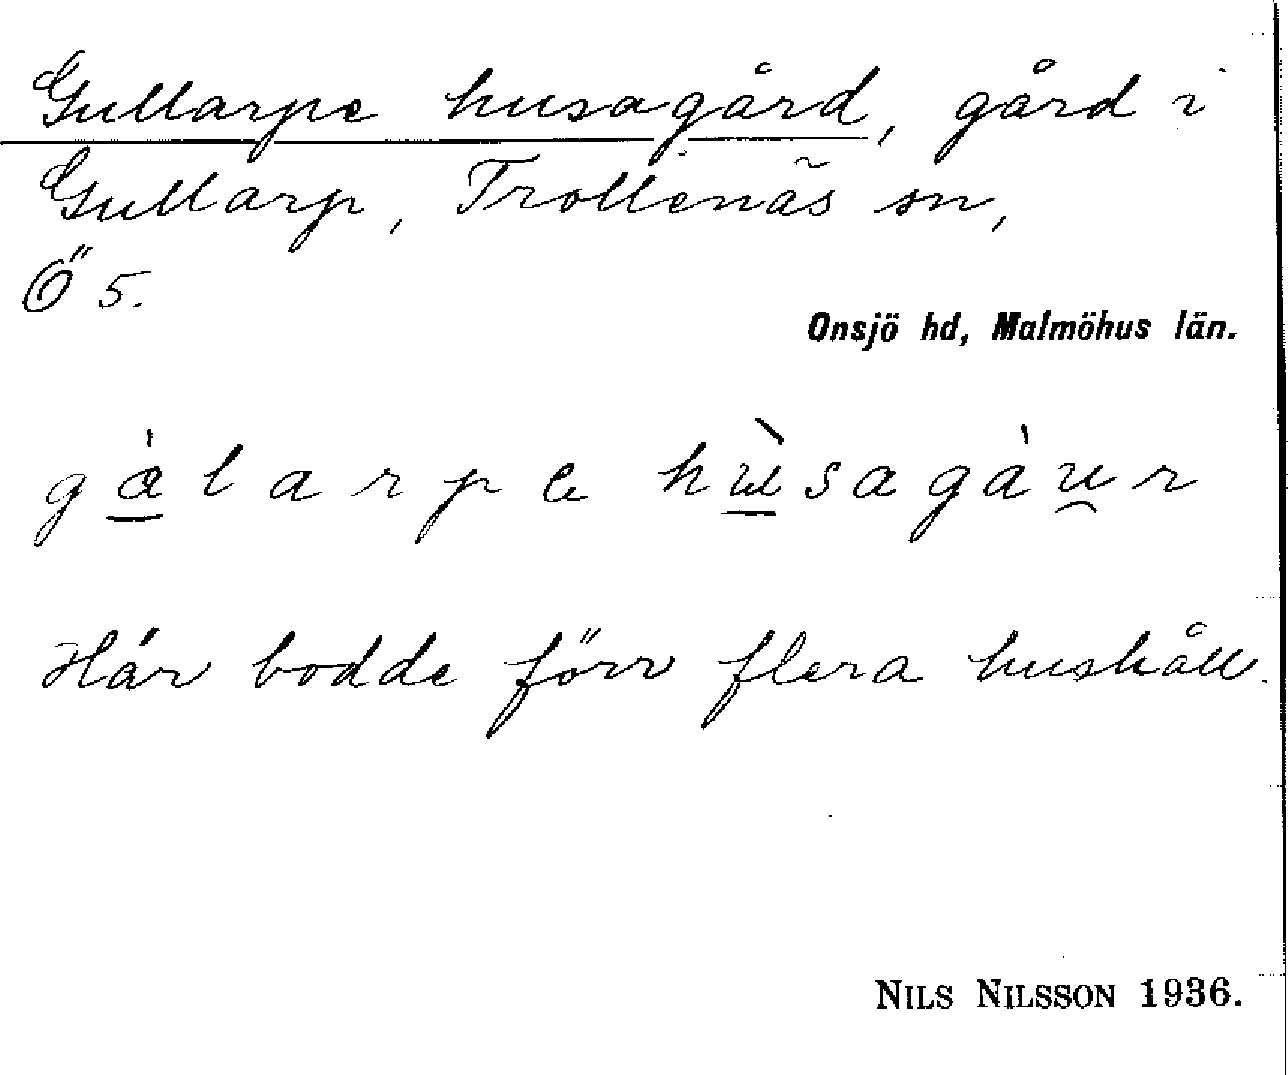 Gullarpe husagård, gård i
Gullarp, Trollenäs sn,
Ö 5.
Onsjö hd, Malmöhus län.
gàlarpe hùsagàu̯r
Här bodde förr flera hushåll.
NILS NILSSON 1936.